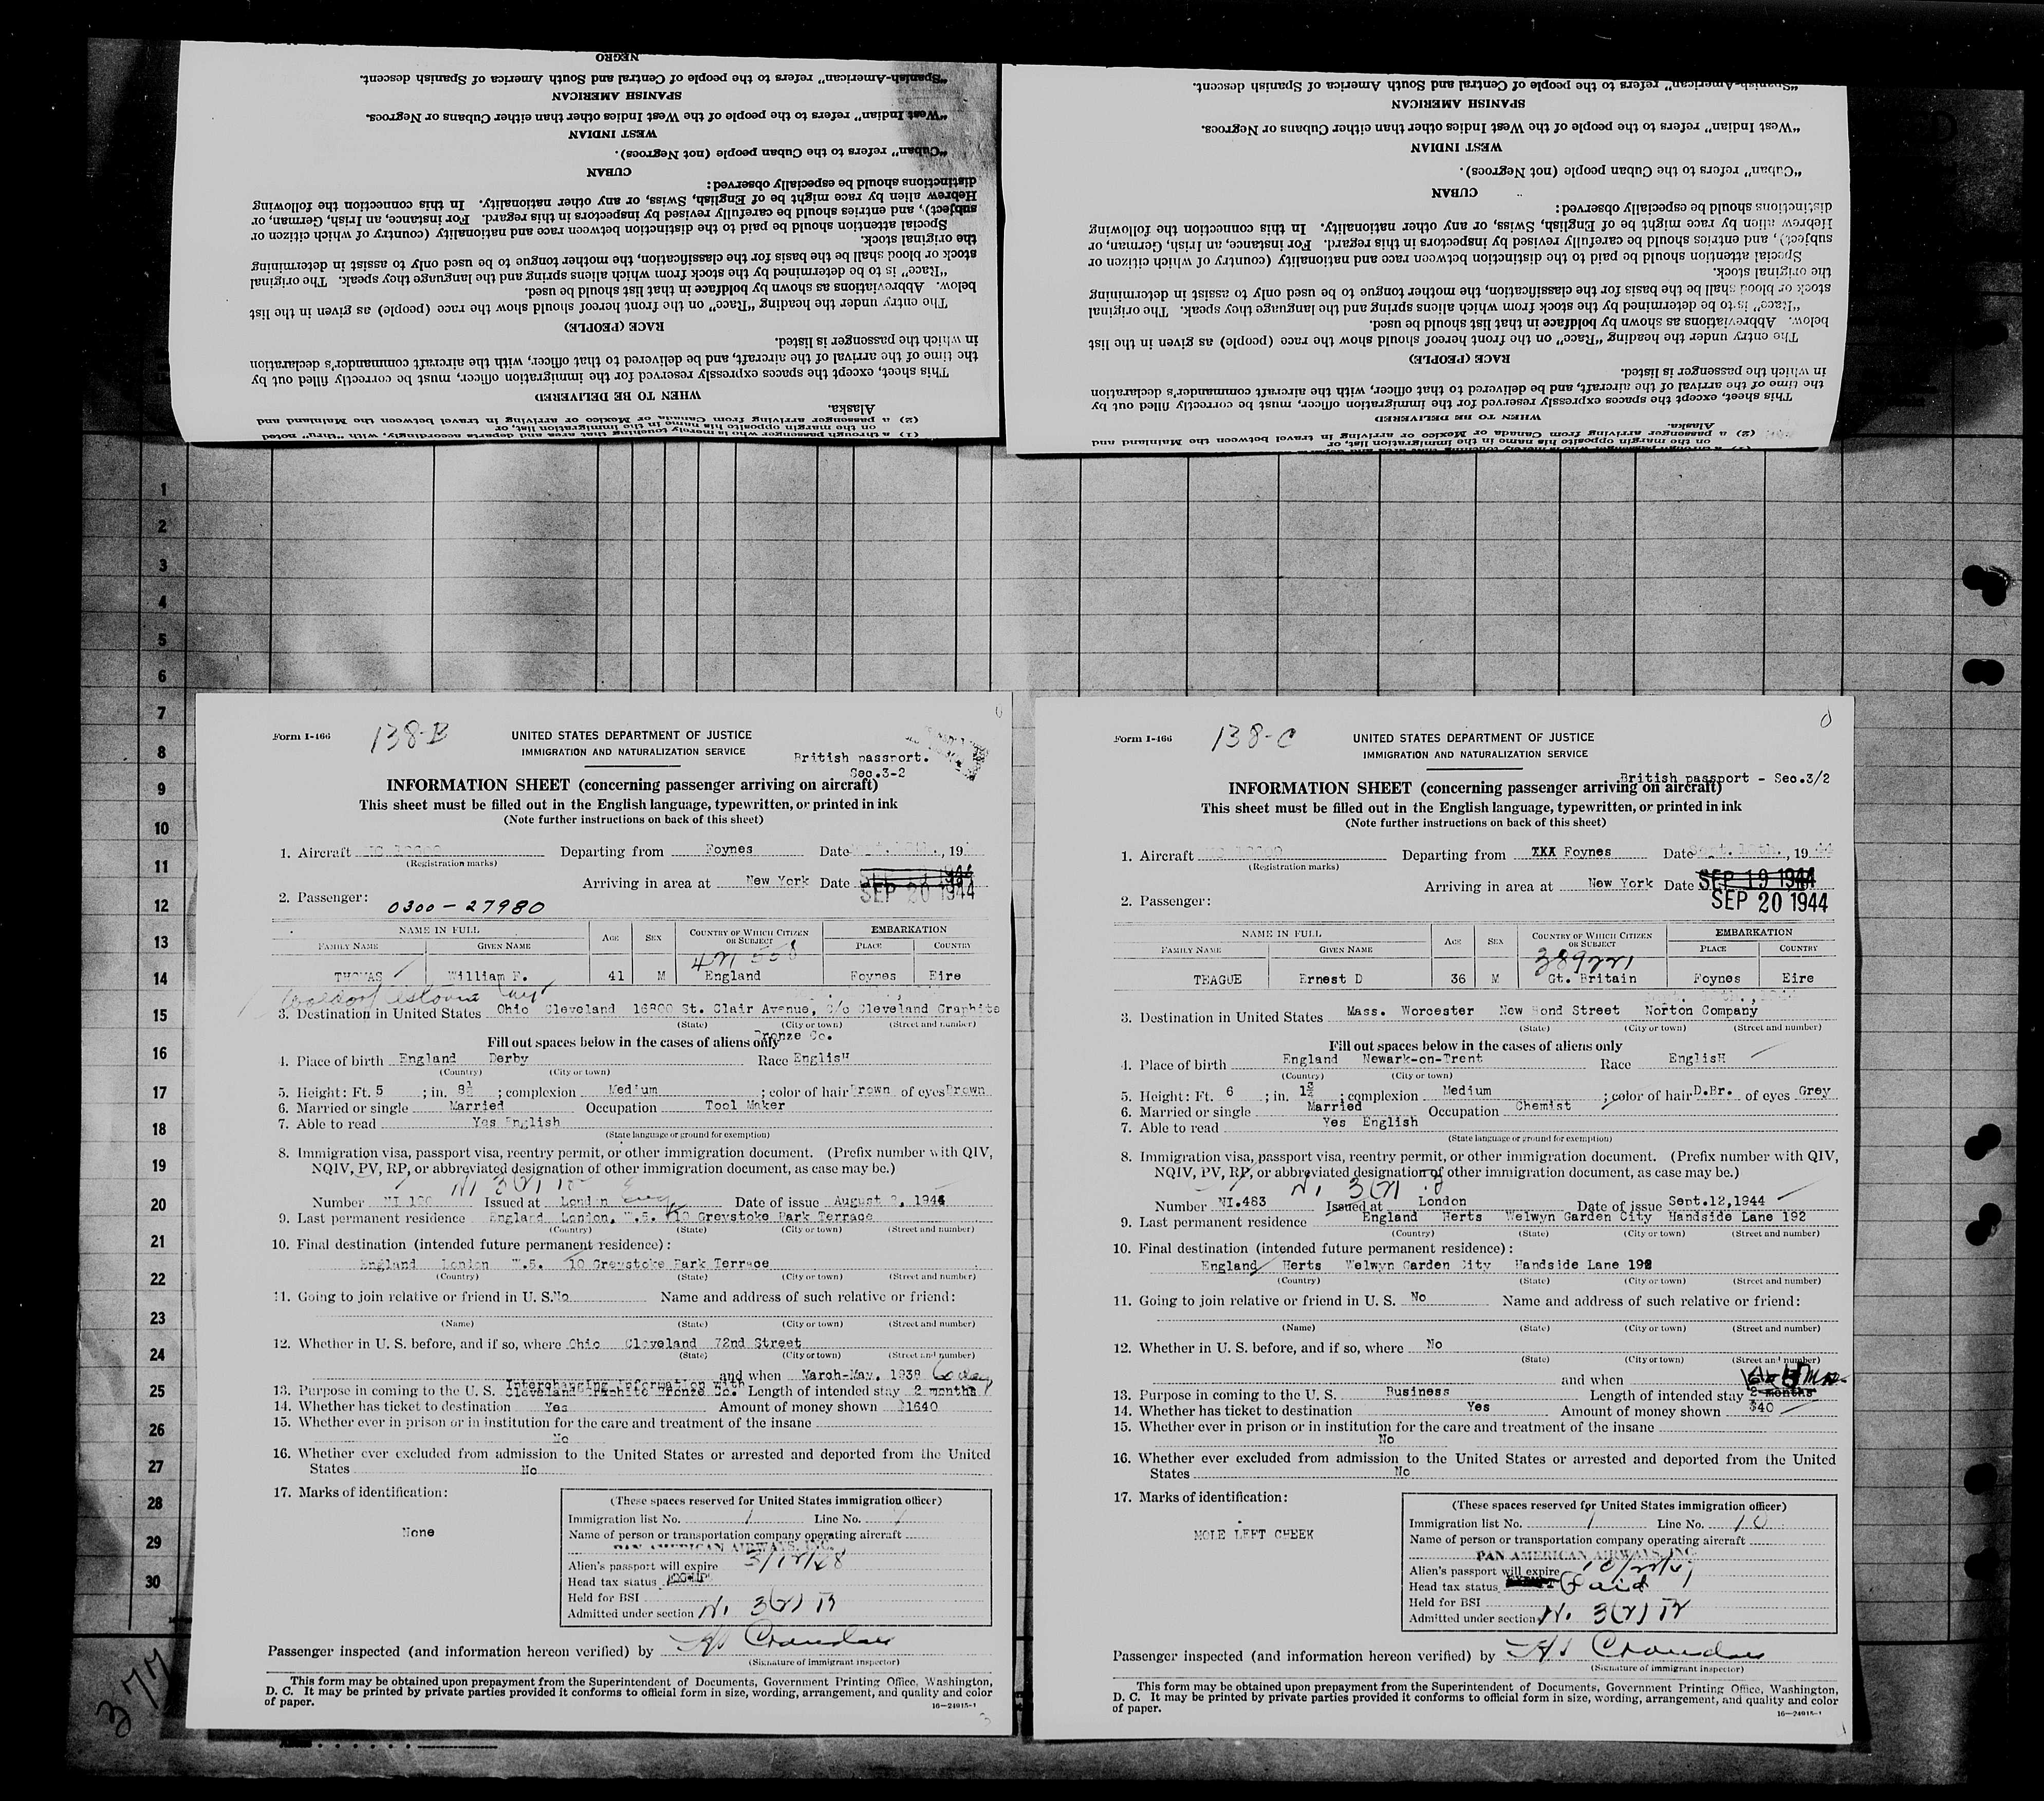 NEGRO
"Spanish-American" refers to the people of Central and South America of Spanish descent.
SPANISH AMERICAN
"West Indian" refers to the people of the West Indies other than either Cubans or Negroes.
WEST INDIAN
"Cuban" refers to the Cuban people (not Negroes).
CUBAN
distinctions should be especially observed:
Hebrew alien by race might be of English, Swiss, or any other nationality. In this connection the following
subject), and entries should be carefully revised by inspectors in this regard. For instance, an Irish, German, or
Special attention should be paid to the distinction between race and nationality (country of which citizen or
the original stock.
stock or blood shall be the basis for the classification, the mother tongue to be used only to assist in determining
"Race" is to be determined by the stock from which aliens spring and the language they speak. The original
below. Abbreviations as shown by boldface in that list should be used.
The entry under the heading "Race" on the front hereof should show the race (people) as given in the list
RACE (PEOPLE)
in which the passenger is listed.
the time of the arrival of the aircraft, and be delivered to that officer, with the aircraft commander's declaration
This sheet, except the spaces expressly reserved for the immigration officer, must be correctly filled out by
WHEN TO BE DELIVERED
Alaska.
(2) a passenger arriving from Canada or Mexico or arriving in travel between the Mainland and
on the margin opposite his name in the immigration list, or
(1) a through passenger who is merely touching that area and departs accordingly, with "thru" noted
"Spanish-American" refers to the people of Central and South America of Spanish descent.
SPANISH AMERICAN
"West Indian" refers to the people of the West Indies other than either Cubans or Negroes.
WEST INDIAN
"Cuban" refers to the Cuban people (not Negroes).
CUBAN
distinctions should be especially observed:
Hebrew alien by race might be of English, Swiss, or any other nationality. In this connection the following
subject), and entries should be carefully revised by inspectors in this regard. For instance, an Irish, German, or
Special attention should be paid to the distinction between race and nationality (country of which citizen or
the original stock.
stock or blood shall be the basis for the classification, the mother tongue to be used only to assist in determining
"Race" is to be determined by the stock from which aliens spring and the language they speak. The original
below. Abbreviations as shown by boldface in that list should be used.
The entry under the heading "Race" on the front hereof should show the race (people) as given in the list
RACE (PEOPLE)
in which the passenger is listed.
the time of the arrival of the aircraft, and be delivered to that officer, with the aircraft commander's declaration
This sheet, except the spaces expressly reserved for the immigration officer, must be correctly filled out by
WHEN TO BE DELIVERED
Alaska.
(2) a passenger arriving from Canada or Mexico or arriving in travel between the Mainland and
on the margin opposite his name in the immigration list, or
1
2
3
4
5
6
7
8
9
10
11
12
13
14
15
16
17
18
19
20
21
22
23
24
25
26
27
28
29
30
377
Form I-466 138-B UNITED STATES DEPARTMENT OF JUSTICE
IMMIGRATION AND NATURALIZATION SERVICE
British passport.
Sec.3-2
INFORMATION SHEET (concerning passenger arriving on aircraft)
This sheet must be filled out in the English language, typewritten, or printed in ink
(Note further instructions on back of this sheet)
1. Aircraft Departing from Foynes Date , 19
(Registration marks)
Arriving in area at New York Date SEP 20 1944
2. Passenger: 0300-27980
NAME IN FULL AGE SEX COUNTRY OF WHICH CITIZEN OR SUBJECT EMBARKATION
FAMILY NAME GIVEN NAME PLACE COUNTRY
THOMAS William F. 41 M England Foynes Eire
3. Destination in United States Ohio Cleveland 16800 St. Clair Avenue, C/o Cleveland Graphite
(State) (City or town) (Street and number)
Bronze Co.
Fill out spaces below in the cases of aliens only
4. Place of birth England Derby Race EnglisH
(Country) (City or town)
5. Height: Ft. 5 ; in. 8½ ; complexion Medium ; color of hair Brown of eyes Brown
6. Married or single Married Occupation Tool Maker
7. Able to read Yes English
(State language or ground for exemption)
8. Immigration visa, passport visa, reentry permit, or other immigration document. (Prefix number with QIV,
NQIV, PV, RP, or abbreviated designation of other immigration document, as case may be.)
Number NI 180 Issued at London Date of issue August 2, 1944
9. Last permanent residence England London, W.5. 10 Greystoke Park Terrace
(Country) (State) (City or town) (Street and number)
10. Final destination (intended future permanent residence):
England London W.5. 10 Greystoke Park Terrace
(Country) (State) (City or town) (Street and number)
11. Going to join relative or friend in U. S. No Name and address of such relative or friend:
(Name) (State) (City or town) (Street and number)
12. Whether in U. S. before, and if so, where Ohio Cleveland 72nd Street
(State) (City or town) (Street and number)
and when March-May, 1939
Interchanging information with
13. Purpose in coming to the U. S. Cleveland Graphite Bronze Co. Length of intended stay 2 months
14. Whether has ticket to destination Yes Amount of money shown $1640
15. Whether ever in prison or in institution for the care and treatment of the insane
No
16. Whether ever excluded from admission to the United States or arrested and deported from the United
States No
17. Marks of identification:
None
(These spaces reserved for United States immigration officer)
Immigration list No. 1 Line No.
Name of person or transportation company operating aircraft
PAN AMERICAN AIRWAYS, INC.
Alien's passport will expire
Head tax status EXEMPT
Held for BSI
Admitted under section
Passenger inspected (and information hereon verified) by
(Signature of immigrant inspector)
This form may be obtained upon prepayment from the Superintendent of Documents, Government Printing Office, Washington,
D. C. It may be printed by private parties provided it conforms to official form in size, wording, arrangement, and quality and color
of paper.
16-24915-1
Form I-466 138-C UNITED STATES DEPARTMENT OF JUSTICE
IMMIGRATION AND NATURALIZATION SERVICE
British passport - Sec.3/2
INFORMATION SHEET (concerning passenger arriving on aircraft)
This sheet must be filled out in the English language, typewritten, or printed in ink
(Note further instructions on back of this sheet)
1. Aircraft Departing from XXX Foynes Date Sept. , 1944
(Registration marks)
Arriving in area at New York Date SEP 19 1944
SEP 20 1944
2. Passenger:
NAME IN FULL AGE SEX COUNTRY OF WHICH CITIZEN OR SUBJECT EMBARKATION
FAMILY NAME GIVEN NAME PLACE COUNTRY
TEAGUE Ernest D 36 M Gt. Britain Foynes Eire
3. Destination in United States Mass. Worcester New Bond Street Norton Company
(State) (City or town) (Street and number)
Fill out spaces below in the cases of aliens only
4. Place of birth England Newark-on-Trent Race EnglisH
(Country) (City or town)
5. Height: Ft. 6 ; in. 1¾ ; complexion Medium ; color of hair D.Br. of eyes Grey
6. Married or single Married Occupation Chemist
7. Able to read Yes English
(State language or ground for exemption)
8. Immigration visa, passport visa, reentry permit, or other immigration document. (Prefix number with QIV,
NQIV, PV, RP, or abbreviated designation of other immigration document, as case may be.)
Number NI.483 Issued at London Date of issue Sept.12,1944
9. Last permanent residence England Herts Welwyn Garden City Handside Lane 192
(Country) (State) (City or town) (Street and number)
10. Final destination (intended future permanent residence):
England Herts Welwyn Garden City Handside Lane 192
(Country) (State) (City or town) (Street and number)
11. Going to join relative or friend in U. S. No Name and address of such relative or friend:
(Name) (State) (City or town) (Street and number)
12. Whether in U. S. before, and if so, where No
(State) (City or town) (Street and number)
and when
13. Purpose in coming to the U. S. Business Length of intended stay 2 months
14. Whether has ticket to destination Yes Amount of money shown $40
15. Whether ever in prison or in institution for the care and treatment of the insane
No
16. Whether ever excluded from admission to the United States or arrested and deported from the United
States No
17. Marks of identification:
MOLE LEFT CHEEK
(These spaces reserved for United States immigration officer)
Immigration list No. 1 Line No. 10
Name of person or transportation company operating aircraft
PAN AMERICAN AIRWAYS, INC.
Alien's passport will expire
Head tax status EXEMPT Paid
Held for BSI
Admitted under section
Passenger inspected (and information hereon verified) by
(Signature of immigrant inspector)
This form may be obtained upon prepayment from the Superintendent of Documents, Government Printing Office, Washington,
D. C. It may be printed by private parties provided it conforms to official form in size, wording, arrangement, and quality and color
of paper.
16-24915-1